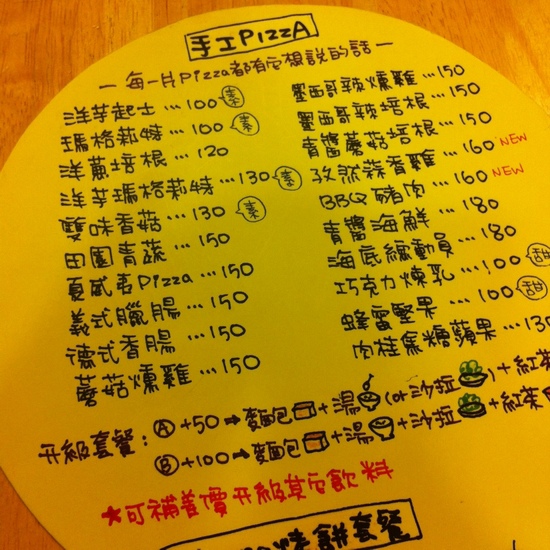 手工PIZZA
— 每一片Pizza都有它想說的話 —
洋芋起士 … 100 素
瑪格莉特 … 100 素
洋蔥培根 … 120
洋芋瑪格莉特 … 130 素
雙味香菇 … 130 素
田園青蔬 … 150
夏威夷Pizza … 150
義式臘腸 … 150
德式香腸 … 150
蘑菇燻雞 … 150
墨西哥辣燻雞 … 150
墨西哥辣培根 … 150
青醬蘑菇培根 … 150
孜然蒜香雞 … 160 NEW
BBQ豬肉 … 160 NEW
青醬海鮮 … 180
海底總動員 … 180
巧克力煉乳 … 100 甜
蜂蜜堅果 … 100 甜
肉桂焦糖蘋果 … 130
升級套餐：Ⓐ +50 ⇒ 麵包 + 湯 (or 沙拉) + 紅茶
Ⓑ +100 ⇒ 麵包 + 湯 + 沙拉 + 紅茶
★可補差價升級其它飲料
燒餅套餐